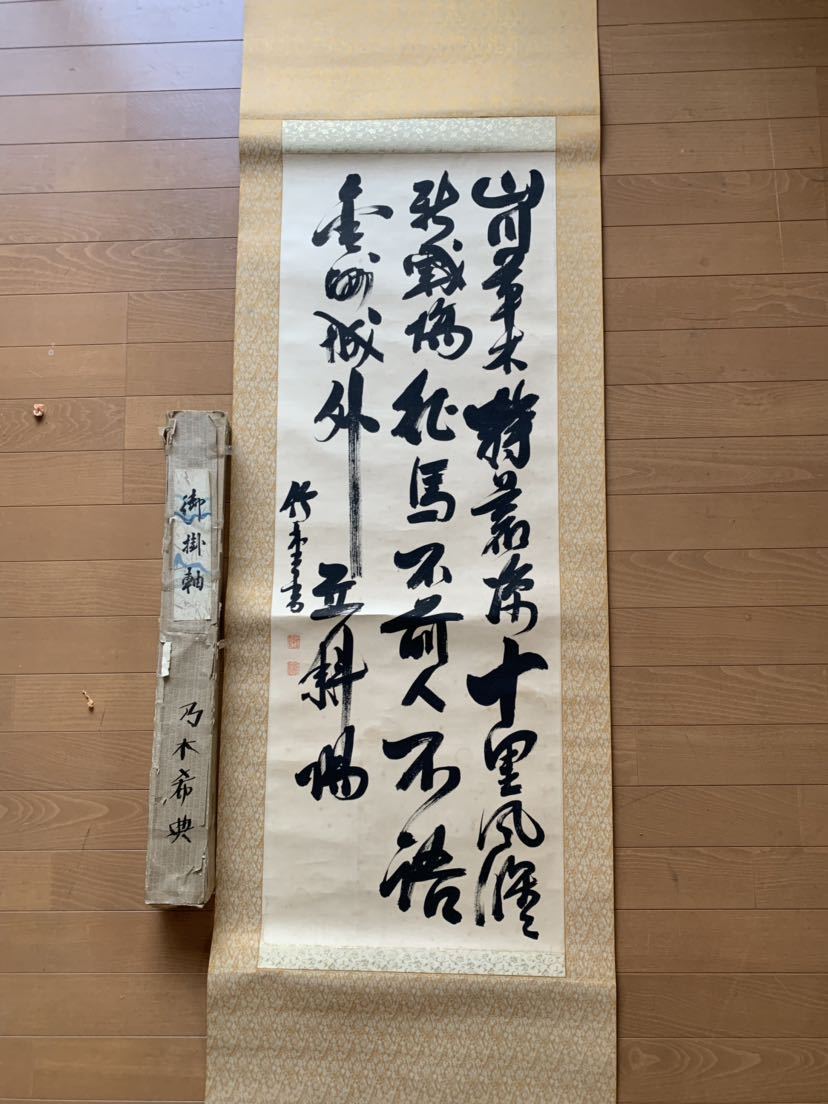 山川草木轉荒涼十里風腥
新戰場征馬不前人不語
金州城外立斜陽
御掛軸
乃木希典